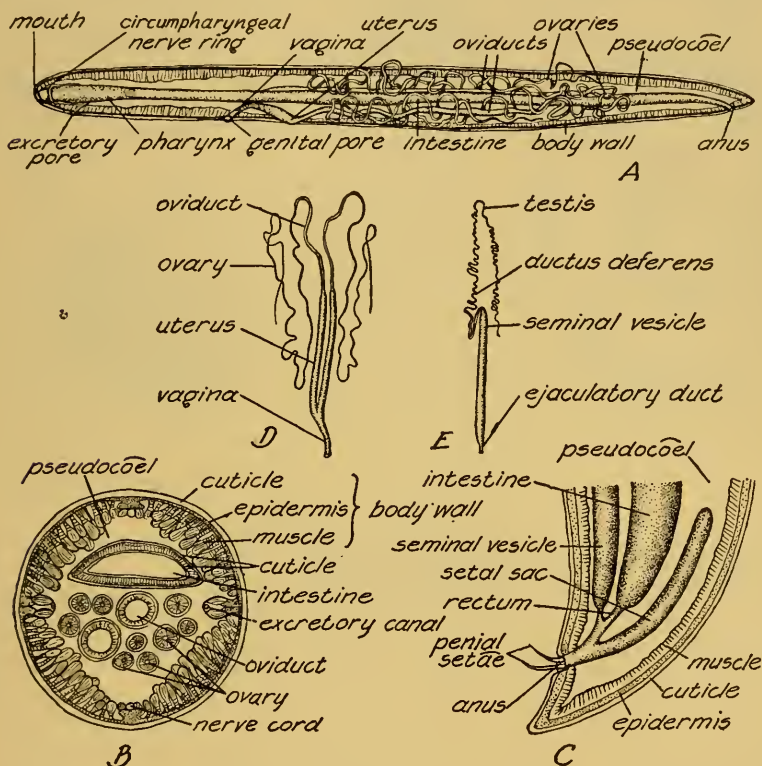 mouth
circumpharyngeal
nerve ring
vagina
uterus
oviducts
ovaries
pseudocoel
excretory
pore
pharynx
genital pore
intestine
body wall
anus
A
oviduct
ovary
uterus
vagina
D
testis
ductus deferens
seminal vesicle
ejaculatory duct
E
pseudocoel
cuticle
epidermis
muscle
body wall
cuticle
intestine
excretory canal
oviduct
ovary
nerve cord
B
pseudocoel
intestine
seminal vesicle
setal sac
rectum
penial
setae
anus
muscle
cuticle
epidermis
C